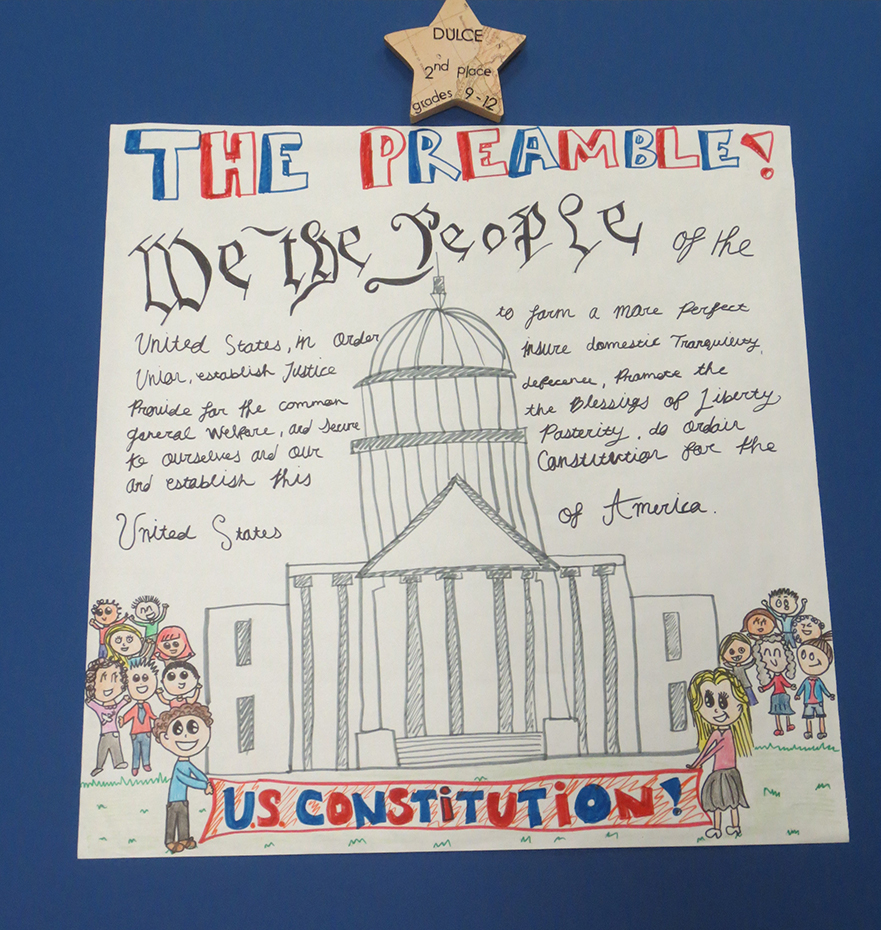 DULCE
2nd place
grades 9-12
THE PREAMBLE!
We the People of the
United States, in Order to form a more perfect
Union, establish Justice insure domestic Tranquility,
Provide for the common defecence, Promote the
general Welfare, and Secure the Blessings of Liberty
to ourselves and our Posterity, do ordain
and establish this Constitution for the
United States of America.
U.S. CONSTITUTION!